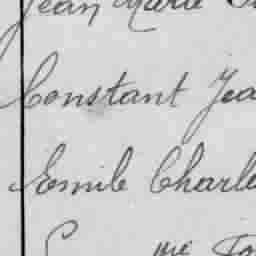 Jean Marie
Constant Jea
Emile Charle